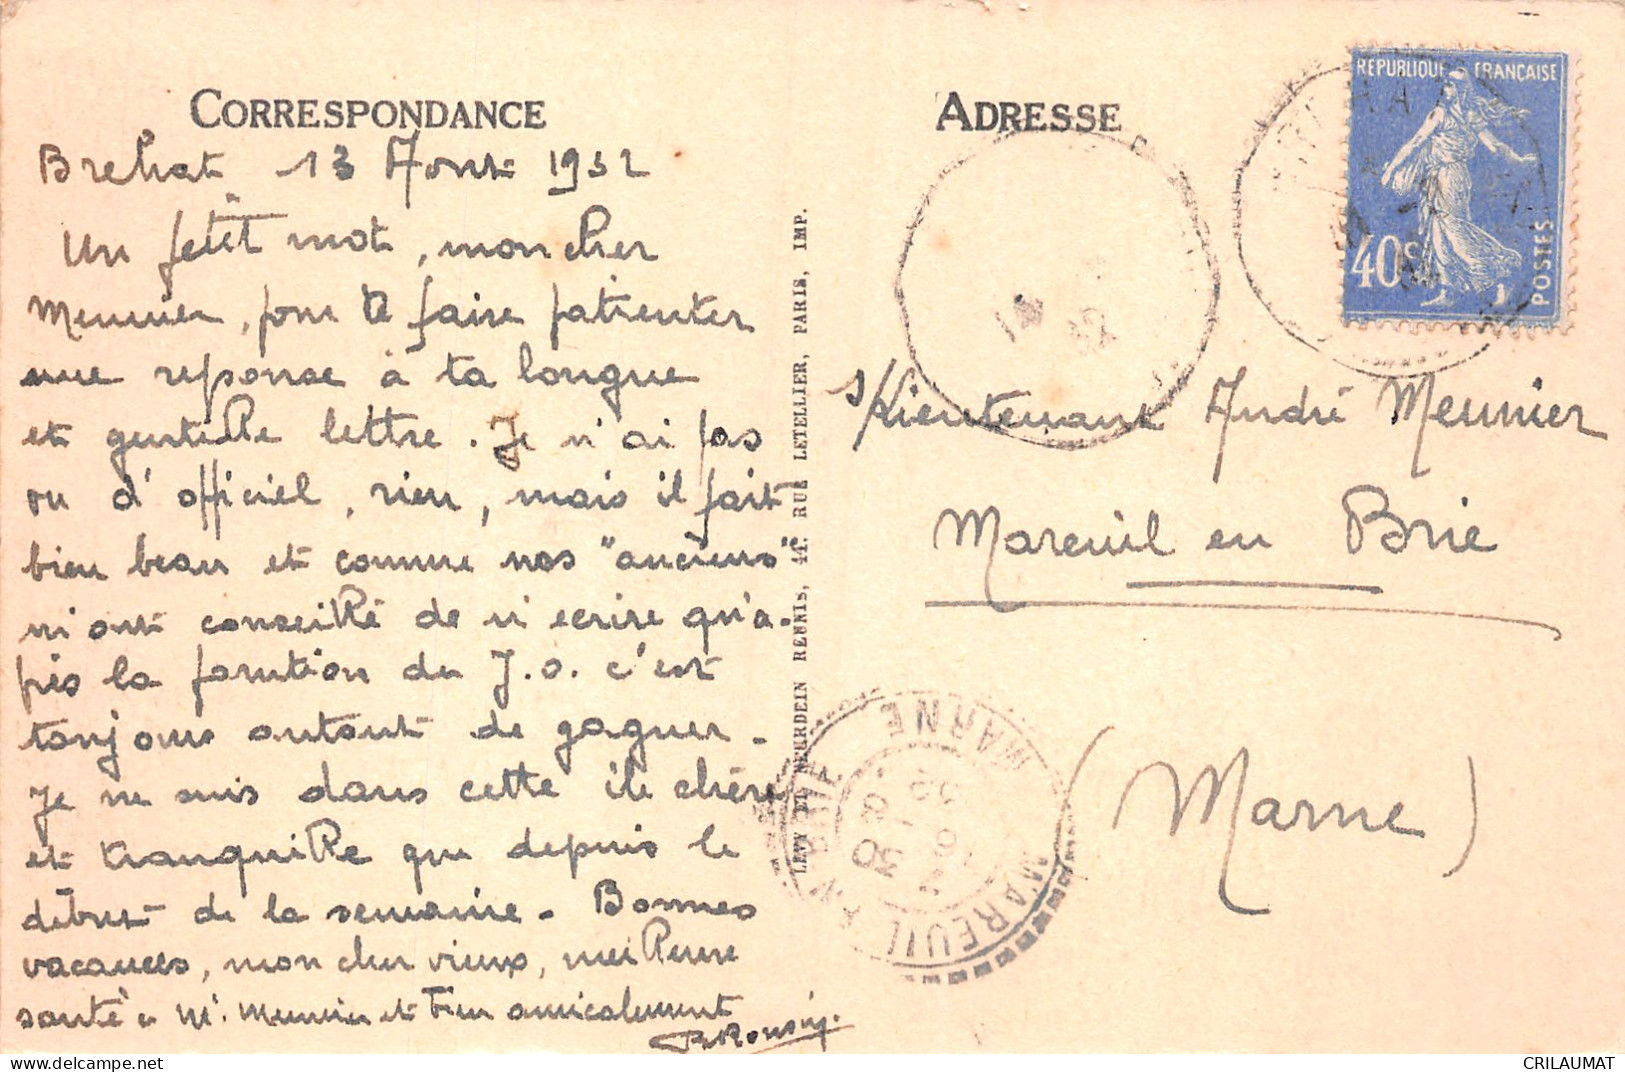 CORRESPONDANCE
Brehat 13 Août 1932
Un petit mot, mon cher
Meunier, pour te faire patienter
une reponse à ta longue
et gentille lettre. Je n'ai pas
ou d'officiel, rien, mais il fait
bien beau et comme nos "anciens"
m'ont conseillé de n'ecrire qu'a-
près la parution du J.O. c'est
toujours autant de gagner.
Je ne suis dans cette ile chère
et tranquille que depuis le
début de la semaine. Bonnes
vacances, mon cher vieux, meilleure
santé à Mr. Meunier et bien amicalement
ADRESSE
S/Lieutenant André Meunier
Mareuil en Brie
(Marne)
REPUBLIQUE FRANÇAISE
40c
POSTES
LEVY ET NEURDEIN REUNIS, 44, RUE LETELLIER, PARIS, IMP.
MAREUIL EN BRIE
MARNE
CRILAUMAT